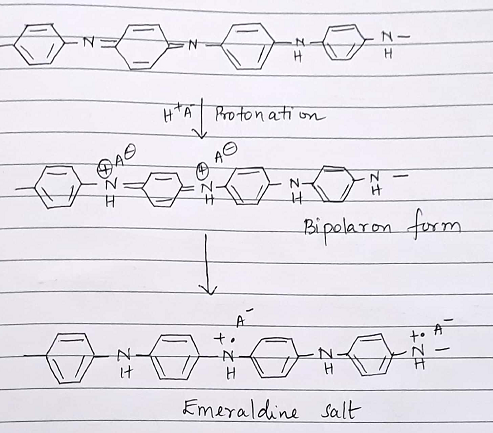 N N N N
H H
H⁺A⁻ Protonation
⊕ A⊖ ⊕ A⊖
N N N N
H H H H
Bipolaron form
A⁻ A⁻
+• +•
N N N N
H H H H
Emeraldine salt